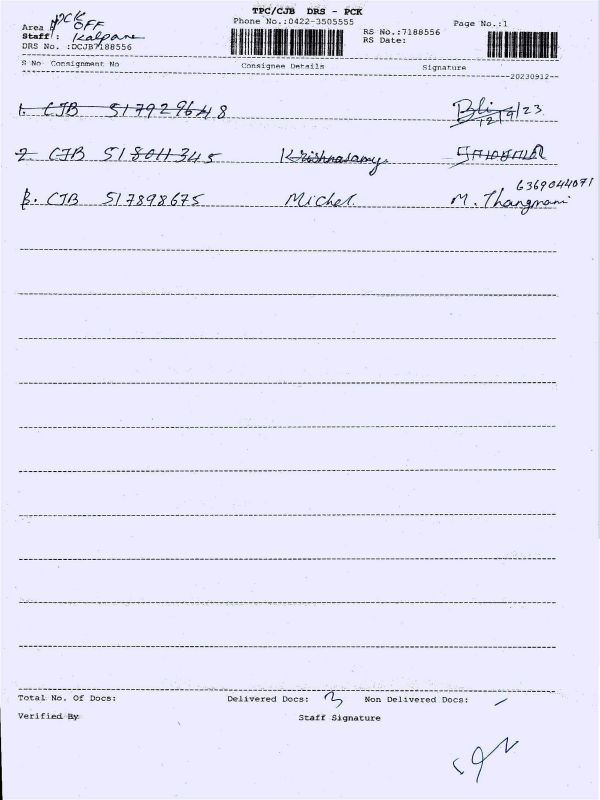 TPC/CJB DRS - PCK
Phone No.:0422-3505555
Page No.:1
Area : PCK OFF
Staff : Kalpana
RS No.:7188556
RS Date:
DRS No. :DCJB7188556
S No Consignment No Consignee Details Signature
--20230912--
1. CJB 517929648 12/9/23
2. CJB 518011345 Krishnasamy
6369044071
3. CJB 517898675 Michel. M. Thangmani
Total No. Of Docs: Delivered Docs: 3 Non Delivered Docs: -
Verified By Staff Signature